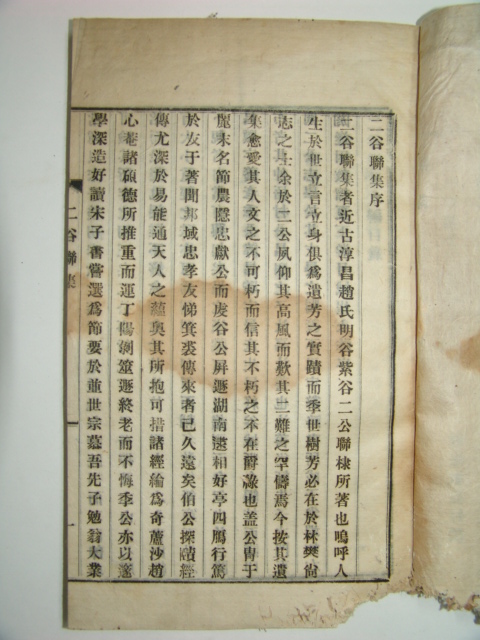 二谷聯集序
二谷聯集者近古淳昌趙氏明谷紫谷二公聯棣所著也嗚呼人
生於世立言立身俱爲遺芳之實蹟而季世樹芳必在於林樊尙
志之士余於二公夙仰其高風而歎其二難之罕儔焉今按其遺
集愈愛其人文之不可朽而信其不朽之不在爵祿也盖公冑于
麗末名節農隱忠獻公而虔谷公屛遯湖南遠相好亭四鴈行篤
於友于著聞邦域忠孝友悌箕裘傳來者已久遠矣伯公探賾經
傳尤深於易能通天人之蘊奧其所抱可措諸經綸爲奇蘆沙趙
心菴諸碩德所推重而運丁陽剝筮遯終老而不悔季公亦以邃
學深造好讀朱子書嘗選爲節要於並世宗慕吾先子勉翁大業
二谷聯集
一